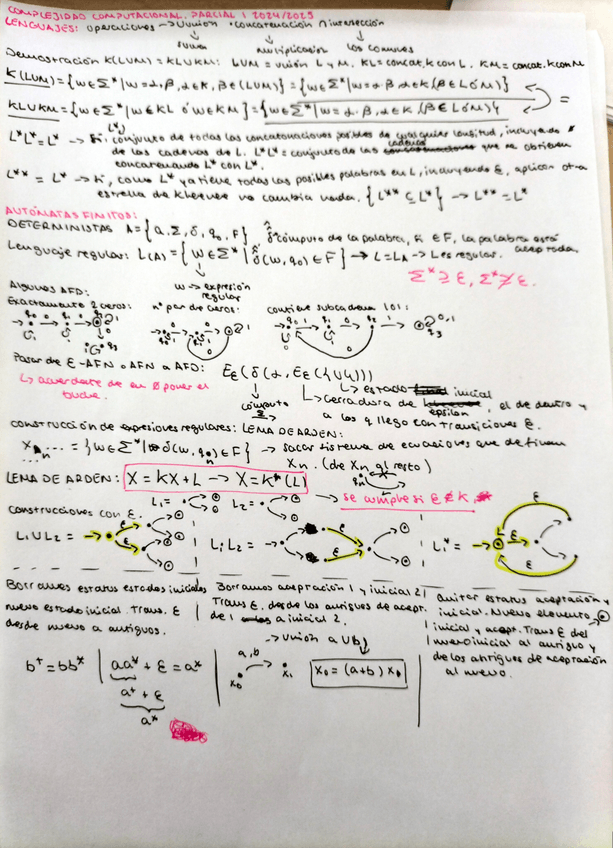 COMPLEJIDAD COMPUTACIONAL. PARCIAL 1 2024/2025
LENGUAJES: operaciones → U unión · concatenación ∩ intersección
suma multiplicación los comunes
Demostración K(LUM) = KLUKM: LUM = unión L y M. KL = concat. K con L. KM = concat. K con M
K(LUM) = {w∈Σ* | w = α.β, α∈K, β∈(LUM)} = {w∈Σ* | w = α.β α∈K (β∈L ó M)}
KLUKM = {w∈Σ* | w∈KL ó w∈KM} = {w∈Σ* | w = α.β, α∈K (β∈L ó M)} =
L*L* = L* → L* conjunto de todas las concatenaciones posibles de cualquier longitud, incluyendo
de las cadenas de L. L*L* = conjunto de las cadenas que se obtienen
concatenando L* con L*.
L** = L* → como L* ya tiene todas las posibles palabras en L, incluyendo ε, aplicar otra
estrella de Kleene no cambia nada. {L** ⊆ L*} → L** = L*
AUTÓMATAS FINITOS:
DETERMINISTAS A = {Q, Σ, δ, q₀, F} δ̂ cómputo de la palabra, si ∈ F, la palabra está
aceptada.
Lenguaje regular: L(A) = {w∈Σ* | δ̂(w, q₀) ∈ F} → L = LA → L es regular.
w → expresión
regular
Σ* ∋ ε, Σ* ∌ ε.
Algunos AFD:
Exactamente 2 ceros: nº par de ceros: contiene subcadena 101:
Pasar de ε-AFN o AFN a AFD: Eε(δ(α, Eε({U})))
↳ acuérdate de en ∅ poner el
bucle.
cómputo
↳ estado inicial
↳ cerradura de epsilon, el de dentro y
a los q llego con transiciones ε.
Construcción de expresiones regulares: LEMA DE ARDEN:
Xn = {w∈Σ* | δ(w, qn) ∈ F} → sacar sistema de ecuaciones que definan
Xn. (de Xn al resto)
LEMA DE ARDEN: X = KX + L → X = K*(L) → se cumple si ε ∉ K
L₁ = L₂ =
Construcciones con ε.
L₁UL₂ = L₁L₂ = L₁* =
Borramos estatus estados iniciales
nuevo estado inicial. Trans. ε
desde nuevo a antiguos.
Borramos aceptación 1 y inicial 2
Trans ε. desde los antiguos de acept.
de 1 a inicial 2.
Quitar estatus aceptación y
inicial. Nuevo elemento
inicial y acept. Trans ε del
nuevo inicial al antiguo y
de los antiguos de aceptación
al nuevo.
b⁺ = bb* aa* + ε = a*
a⁺ + ε
a*
→ unión a U b
a, b
X₀ X₁ X₀ = (a+b) X₁